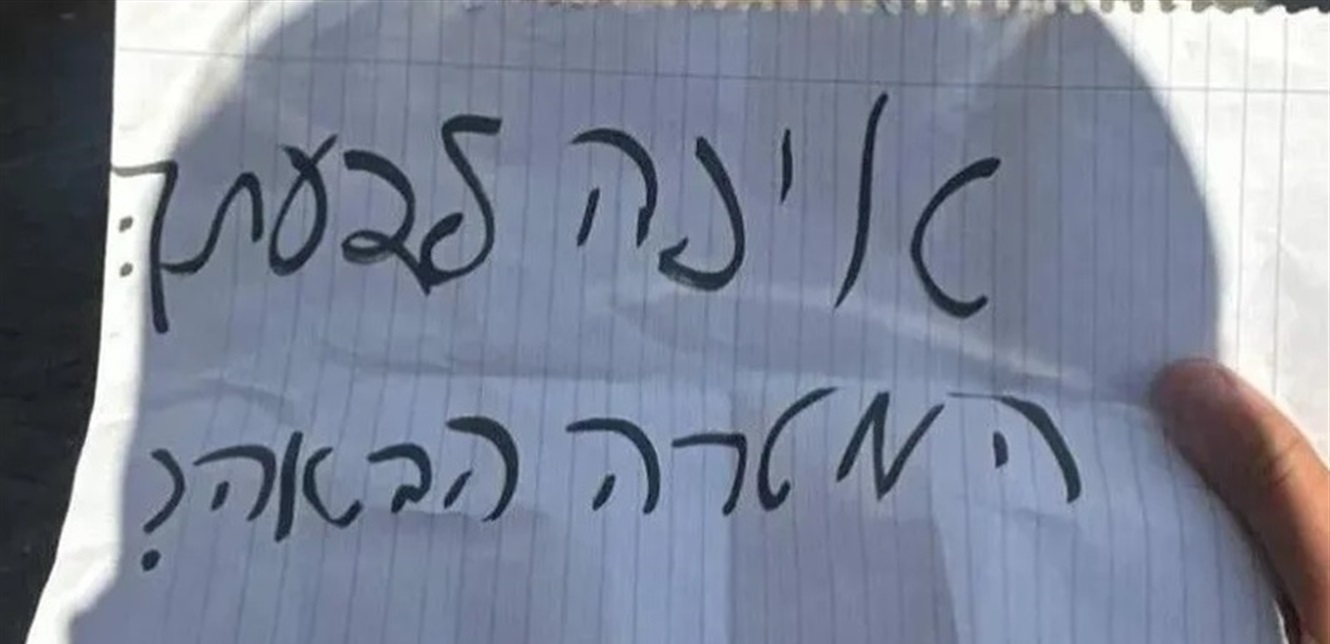 אינה לבעתך:
המטרה הבאה?